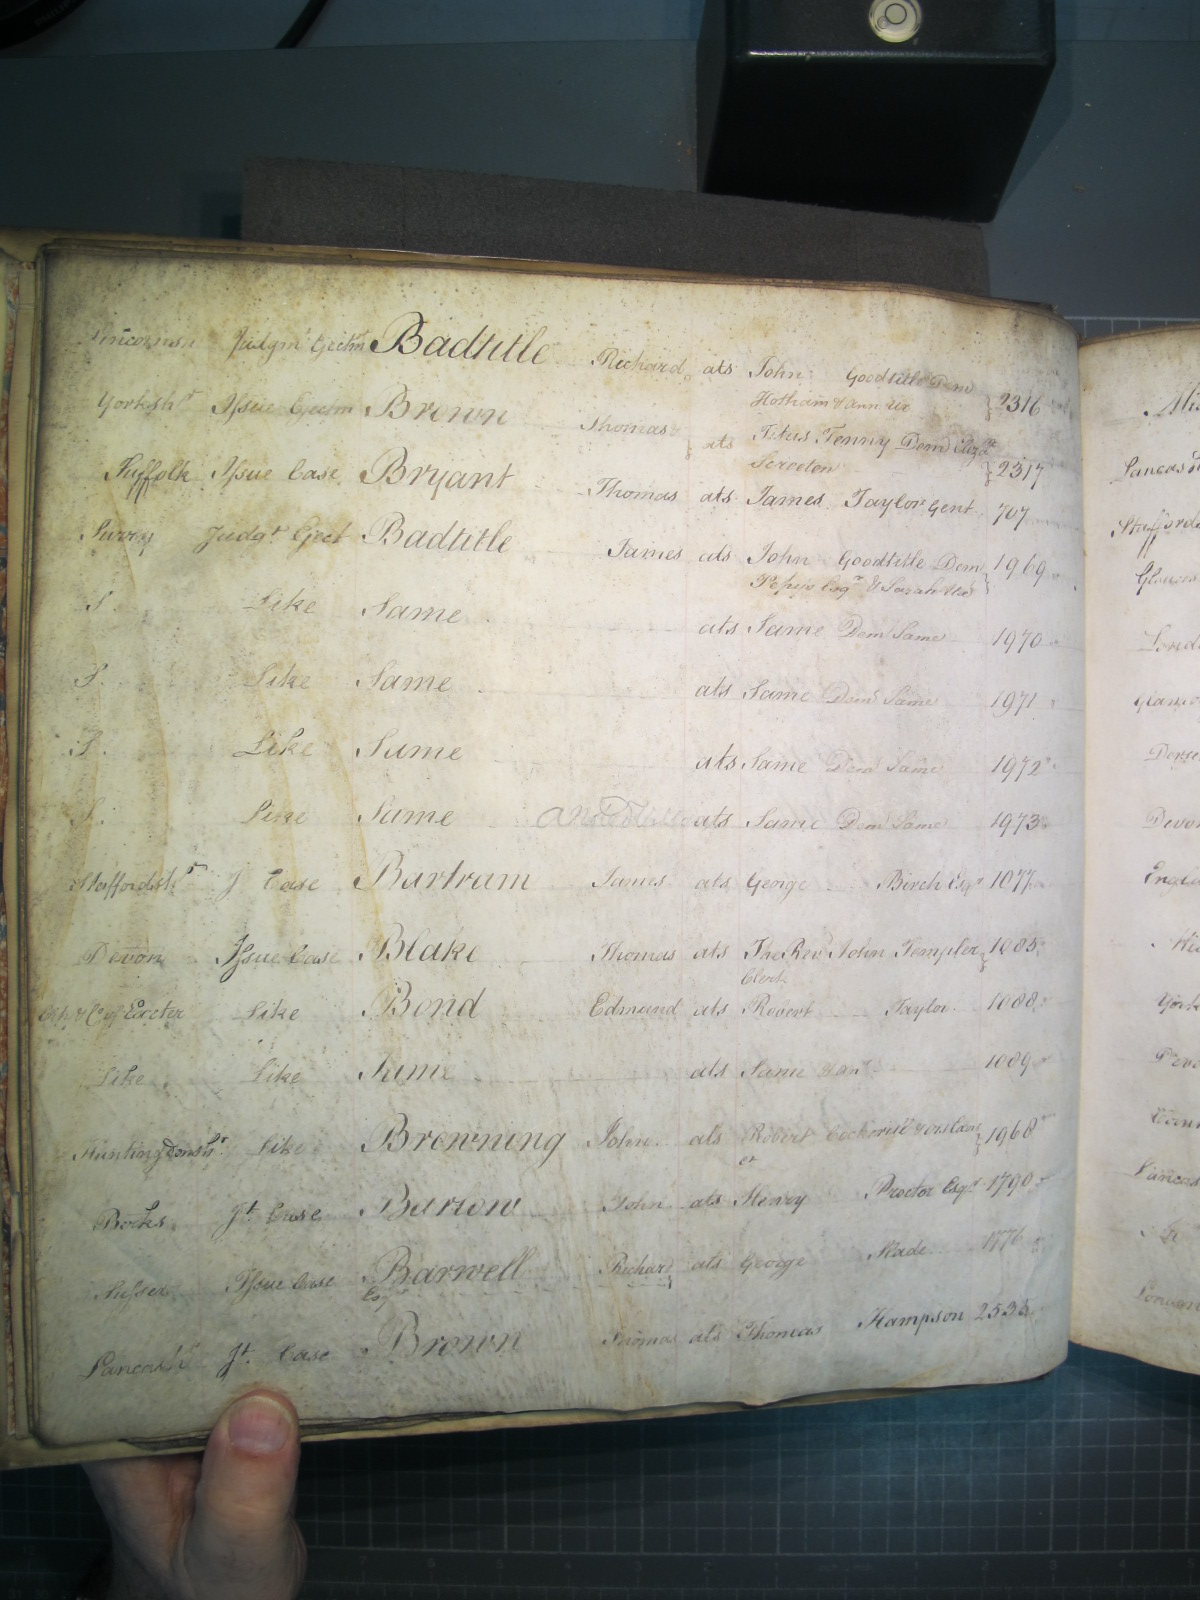 Judgmt Ejectm Badtitle Richard ats John Goodtitle Dem
Hotham & ann Ux 2316
Yorksh.r Issue Ejectm Brown Thomas ats Titus Tenny Dem Eliz.th
Scrocton 2317
Suffolk Issue Case Bryant Thomas ats James Taylor Gent 707
Surry Judgt Eject Badtitle James ats John Goodtitle Dem 1969
Pepys Esq.r & Sarah Ux
S. Like Same ats Same Dem Same 1970
S. Like Same ats Same Dem Same 1971
S. Like Same ats Same Dem Same 1972
S. Like Same ats Same Dem Same 1973
Staffordsh.r J Case Bartram James ats George Birch Esq.r 1077
Devon Issue Case Blake Thomas ats The Rev.d John Templer 1085
Clerk
City & Co of Exeter Like Bond Edmund ats Robert Taylor 1088
Like Like Same ats Same & an.r 1089
Huntingdonsh.r Like Browning John ats Robert 1968
Bucks Jt. Case Barrow John ats Henry Proctor Esq.r 1790
Sussex Issue Case Barwell Richard ats George Slade 1776
Esq.r
Lancash.r Jt. Case Brown Thomas ats Thomas Hampson 2535